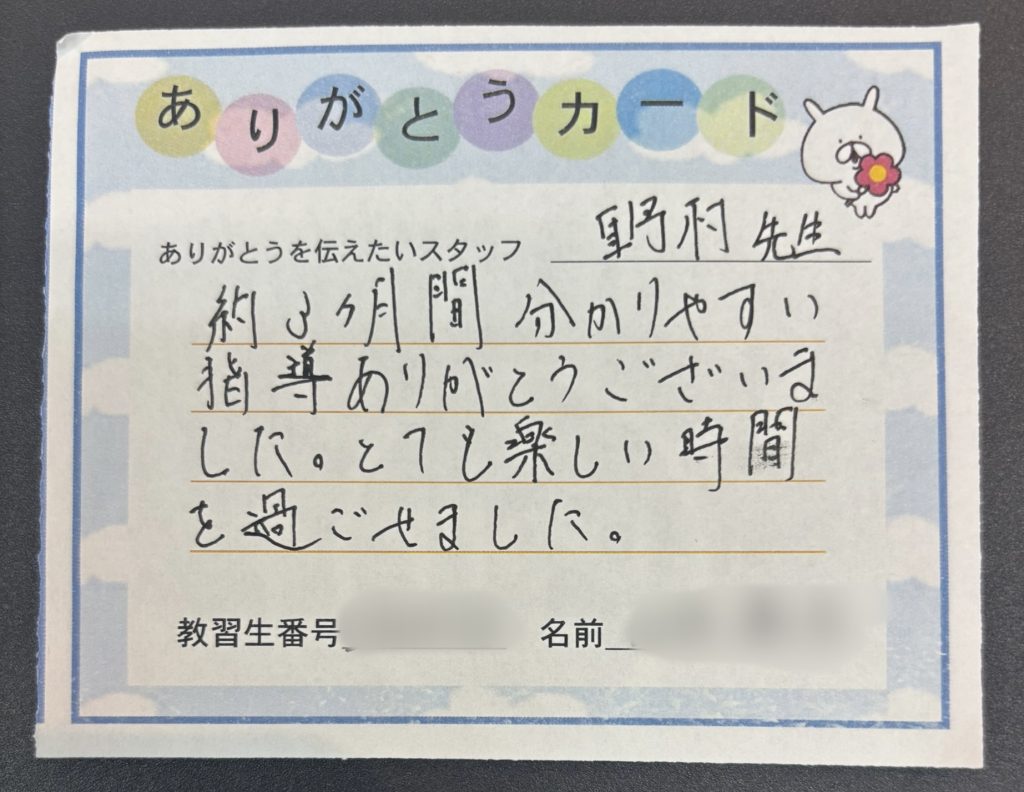 ありがとうカード
ありがとうを伝えたいスタッフ 野村 先生
約3ヶ月間 分かりやすい
指導ありがとうございま
した。とても楽しい時間
を過ごせました。
教習生番号 名前